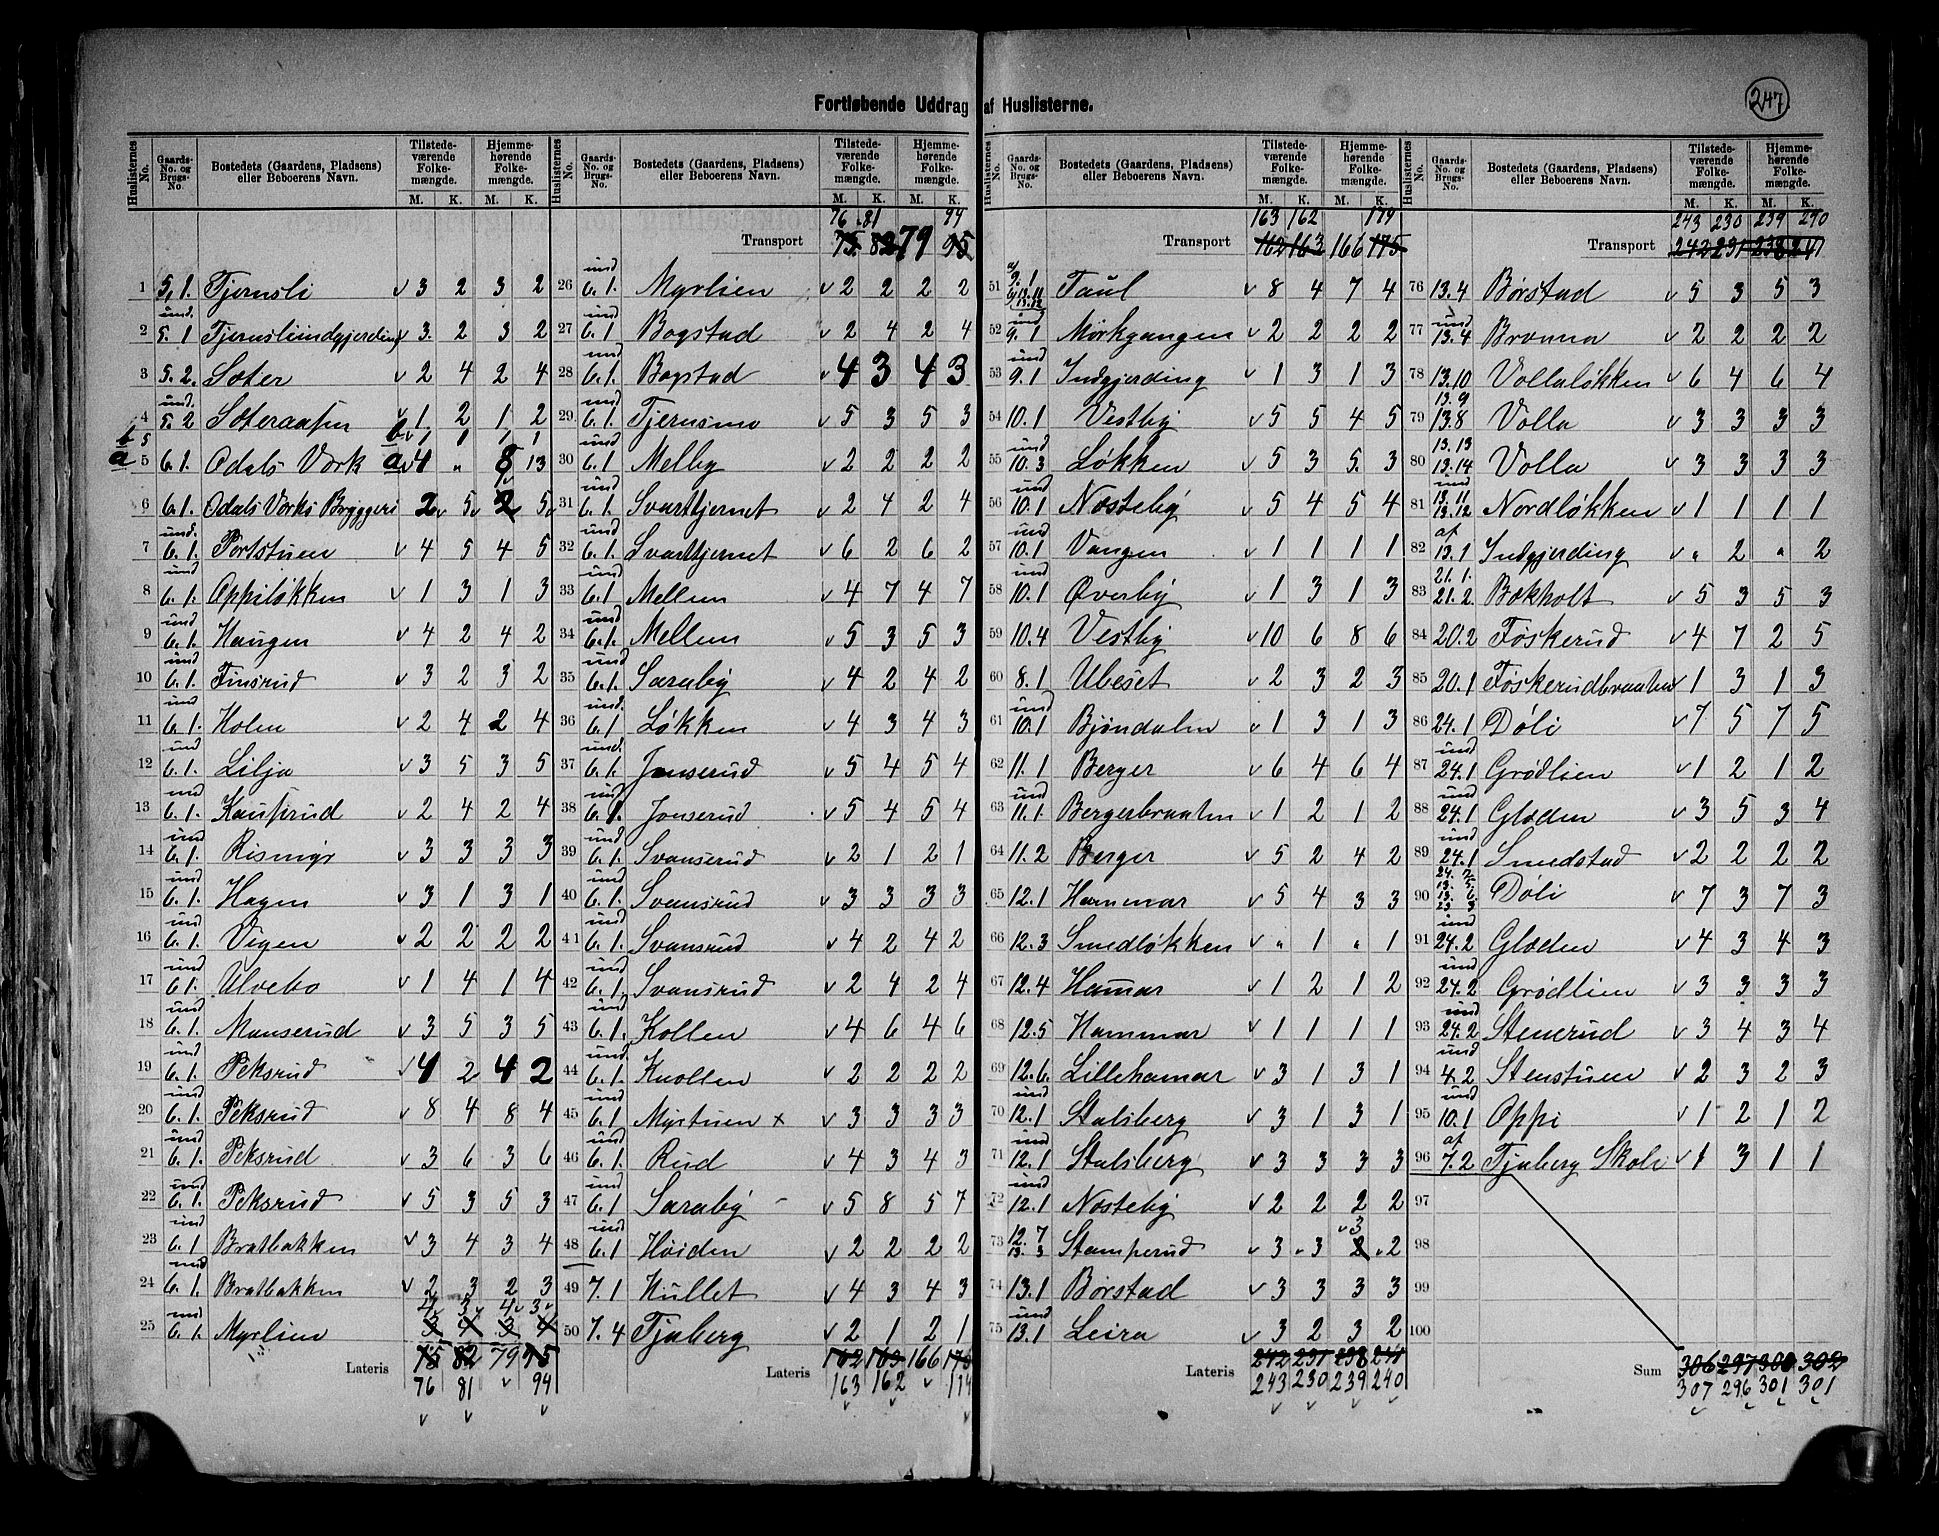 247
Fortløbende Uddrag af Huslisterne.
Huslisternes No. Gaards-No. og Brugs-No. Bostedets (Gaardens, Pladsens) eller Beboerens Navn. Tilstedeværende Folkemængde. M. K. Hjemmehørende Folkemængde. M. K.
1 5.1. Tjernsli v 3 2 3 2
2 und. 5.1 Tjernsliindgjerding v 3. 2 3 2
3 5.2. Sæter v 2 4 2 4
4 und. 5.2 Sæteraasen v 1 2 1 2
b 5 b v 1 1 1 1
a 5 6.1. Odals Værk a v 4 „ 8 13
6 6.1. Odals Værks Bryggeri 2 v 5 v 2 5 v
7 und. 6.1. Portstuen v 4 5 4 5
8 und 6.1. Oppiløkken v 1 3 1 3
9 und 6.1. Haugen v 4 2 4 2
10 und 6.1. Finsrud v 3 2 3 2
11 und 6.1. Holen v 2 4 2 4
12 und 6.1. Lilja v 3 5 3 5
13 und 6.1. Kausrud v 2 4 2 4
14 und 6.1. Rismyr v 3 3 3 3
15 und 6.1. Hagen v 3 1 3 1
16 und 6.1. Vigen v 2 2 2 2
17 und 6.1. Ulvebo v 1 4 1 4
18 und 6.1. Manserud v 3 5 3 5
19 und 6.1. Peksrud v 4 2 4 2
20 und 6.1. Peksrud v 8 4 8 4
21 und 6.1. Peksrud v 3 6 3 6
22 und 6.1. Peksrud v 5 3 5 3
23 und 6.1 Bratbakken v 3 4 3 4
24 und 6.1. Bratbakken v 2 3 2 3
4 v 3 v 4 v 3 v
25 und 6.1. Myrlien 3 4 3 4
Lateris 75 82 79 95
76 81 v 94
Huslisternes No. Gaards-No. og Brugs-No. Bostedets (Gaardens, Pladsens) eller Beboerens Navn. Tilstedeværende Folkemængde. M. K. Hjemmehørende Folkemængde. M. K.
76 81 94
Transport 75 82 79 95
26 und 6.1. Myrlien v 2 2 2 2
27 und 6.1 Bogstad v 2 4 2 4
28 und 6.1. Bogstad v 4 3 4 3
29 und 6.1. Tjernsmo v 5 3 5 3
30 und 6.1 Melby v 2 2 2 2
31 und 6.1. Svarttjernet v 2 4 2 4
32 und 6.1. Svarttjernet v 6 2 6 2
33 und 6.1 Mellem v 4 7 4 7
34 und 6.1. Mellem v 5 3 5 3
35 und 6.1. Saraby v 4 2 4 2
36 und. 6.1 Løkken v 4 3 4 3
37 und. 6.1. Jonserud v 5 4 5 4
38 und 6.1. Jonserud v 5 4 5 4
39 und 6.1. Svanserud v 2 1 2 1
40 und 6.1. Svansrud v 3 3 3 3
41 und 6.1. Svansrud v 4 2 4 2
42 und 6.1. Svansrud v 2 4 2 4
43 und 6.1. Kollen v 4 6 4 6
44 und. 6.1. Knollen v 2 2 2 2
45 und 6.1 Myrtuen x v 3 3 3 3
46 und 6.1. Rud v 4 3 4 3
47 und 6.1 Saraby - v 5 8 5 7
48 und 6.1 Høiden v 2 2 2 2
49 7.1 Kullet v 4 3 4 3
50 7.4 Tjuberg v 2 1 2 1
Lateris 162 163 166
163 162 v 174
Huslisternes No. Gaards-No. og Brugs-No. Bostedets (Gaardens, Pladsens) eller Beboerens Navn. Tilstedeværende Folkemængde. M. K. Hjemmehørende Folkemængde. M. K.
163 162 179
Transport 162 163 166 175
51 9.1 Taul v 8 4 7 4
52 und 9.1 Mørkgangen v 2 2 2 2
53 und 9.1 Indgjerding v 1 3 1 3
54 10.1 Vestby v 5 5 4 5
55 und 10.3 Løkken v 5 3 5. 3
56 und 10.1 Næsteby v 5 4 5 4
57 und 10.1 Vangen v 1 1 1 1
58 und 10.1 Øverby v 1 3 1 3
59 10.4 Vestby v 10 6 8 6
60 8.1 Ubeset v 2 3 2 3
61 und 10.1 Bjøndalen v 1 3 1 3
62 11.1 Berger v 6 4 6 4
63 und 11.1. Bergerbraaten v 1 2 1 2
64 11.2 Berger v 5 2 4 2
65 12.1 Hammar v 5 4 3 3
66 12.3 Smedløkken v „ 1 „ 1
67 12.4 Hamar v 1 2 1 2
68 12.5 Hammar v 1 1 1 1
69 12.6. Lillehamar v 3 1 3 1
70 und 12.1 Stalsberg v 3 1 3 1
71 und 12.1 Stalsberg v 3 3 3 3
72 und 12.1 Næsteby v 2 2 2 2
73 12.7 13.3 Stamperud v 3 v 3 v 3 2 v 2
74 13.1 Børstad v 3 3 3 3
75 und 13.1 Leira v 3 2 3 2
Lateris 242 231 238 241
243 230 239 240
v v v v
Huslisternes No. Gaards-No. og Brugs-No. Bostedets (Gaardens, Pladsens) eller Beboerens Navn. Tilstedeværende Folkemængde. M. K. Hjemmehørende Folkemængde. M. K.
243 230 239 290
Transport 242 231 238 241
76 13.4 Børstad v 5 3 5 3
77 und 13.4 Brønna v 2 2 2 2
78 13.10 Vollaløkken v 6 4 6 4
79 13.9 13.8 Volla v 3 3 3 3
80 13.13 13.14 Volla v 3 3 3 3
81 und 13.11 13.12 Nordløkken v 1 1 1 1
82 af 13.1 Indgjerding v „ 2 „ 2
83 21.1. 21.2. Bækholt v 5 3 5 3
84 20.2 Føskerud v 4 7 2 5
85 20.1 Føskerudbraaten v 1 3 1 3
86 24.1 Døli v 7 5 7 5
87 und 24.1 Grødlien v 1 2 1 2
88 und 24.1 Glæden v 3 5 3 4
89 und 24.1 Smedstad v 2 2 2 2
90 Døli v 7 3 7 3
91 und 24.2 Glæden v 4 3 4 3
92 und 24.2 Grødlien v 3 3 3 3
93 und 24.2 Stenerud v 3 4 3 4
94 und 4.2 Stenstuen v 2 3 2 3
95 und 10.1 Oppi v 1 2 1 2
96 af 7.2 Tjuberg Skole v 1 3 1 1
97
98
99
100
Sum 306 297 300 302
307 296 301 301
v v v v